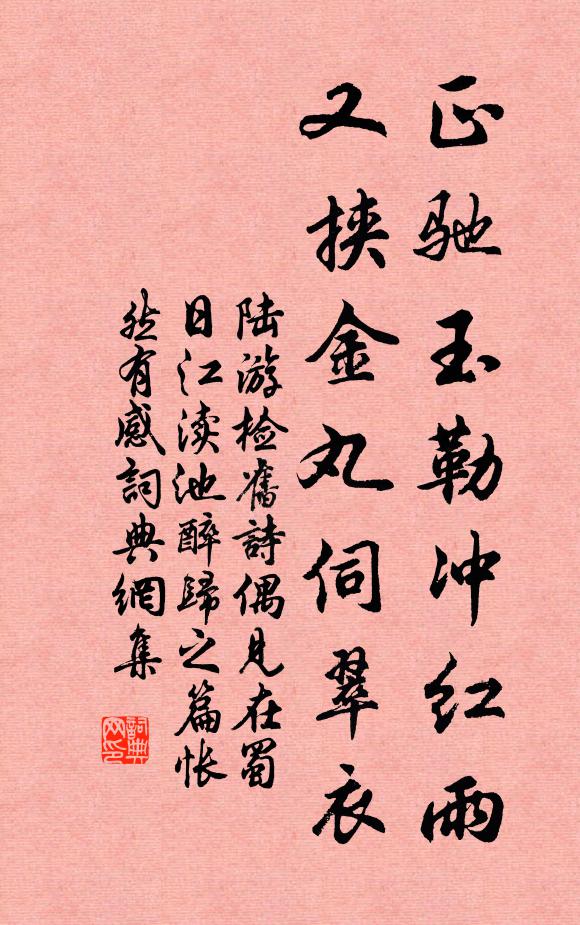 正驰玉勒冲红雨
又挟金丸伺翠衣
陆游检旧詩偶見在蜀
日江渎池醉歸之篇怅
然有感詞典網集
詞典网印